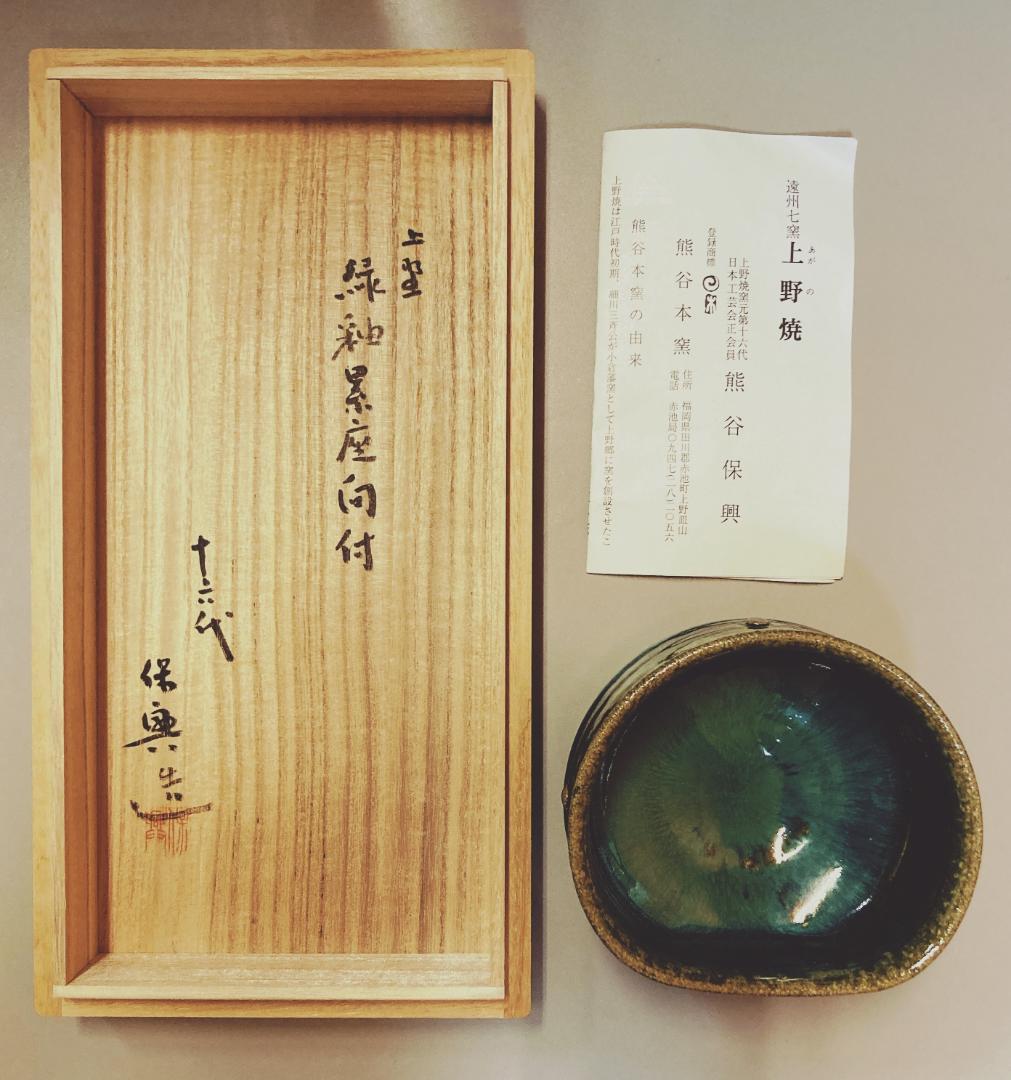 上野
緑釉累座向付
十六代
保興造
遠州七窯 上野焼
あがの
上野焼窯元第十六代
日本工芸会正会員
熊谷保興
登録商標
熊谷本窯
住所 福岡県田川郡赤池町上野皿山
電話 赤池局〇九四七二八二〇五六
熊谷本窯の由来
上野焼は江戸時代初期、細川三斉公が小倉藩窯として上野郷に窯を創設させたこ